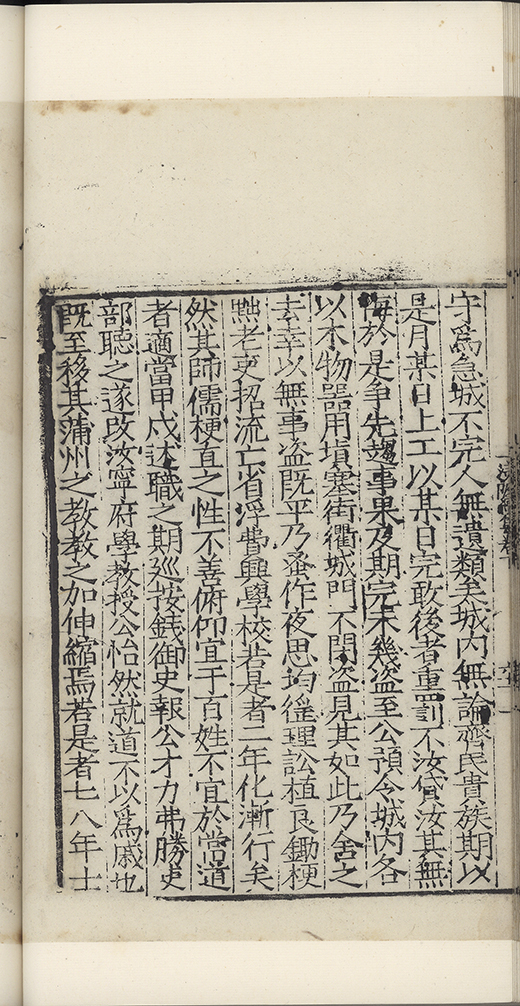 守爲急城不完人無遺類矣城内無論齊民貴族期以
是月某日上工以某日完敢後者重罰不汝貸汝其無
悔於是争先趨事果及期完未幾盗至公預令城内各
以木物器用塡塞街衢城門不閉盗見其如此乃舍之
去幸以無事盗既平乃蚤作夜思均徭理訟植良鋤梗
黜老吏招流亡省浮費興學校若是者二年化漸行矣
然其師儒梗直之性不善俯仰宜于百姓不宜於當道
者適當甲戍述職之期廵按錢御史報公才力弗勝吏
部聽之遂改汝寧府學教授公怡然就道不以爲戚也
既至移其蒲州之教教之加伸縮焉若是者七八年士